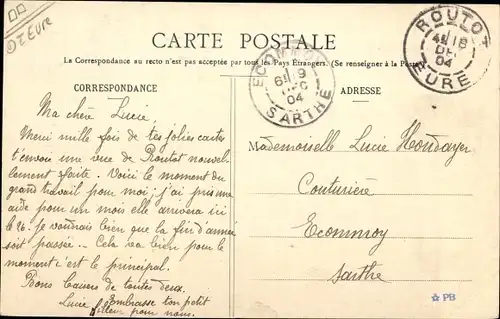 Ⓓ Eure
CARTE POSTALE
La Correspondance au recto n'est pas acceptée par tous les Pays Étrangers. (Se renseigner à la Poste)
CORRESPONDANCE
Ma chère Lucie,
Merci mille fois de tes jolies cartes
t'envoie une vue de Routot nouvel-
lement faite. Voici le moment du
grand travail pour moi; j'ai pris une
aide pour un mois elle arrivera ici
le 26. Je voudrais bien que la fin d'année
soit passée. Cela va bien pour le
moment c'est le principal.
Bons baisers de toutes deux.
Lucie Embrasse ton petit
filleul pour nous.
ECOMMOY
6E 9
DEC
04
SARTHE
ROUTOT
8
DEC
04
EURE
ADRESSE
Mademoiselle Lucie Houdayer
Couturière
Ecommoy
Sarthe
☆ PB